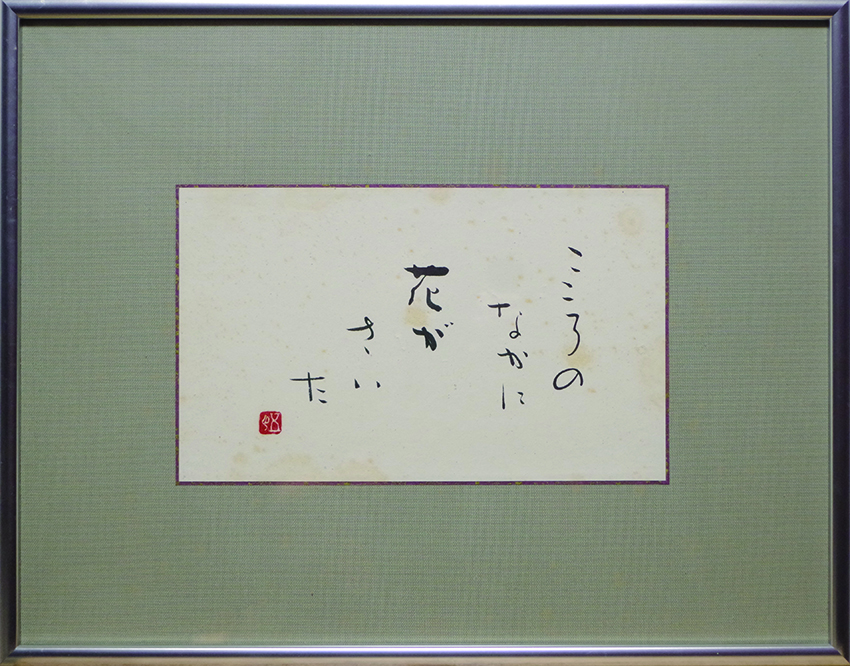 こころの
なかに
花が
さい
た